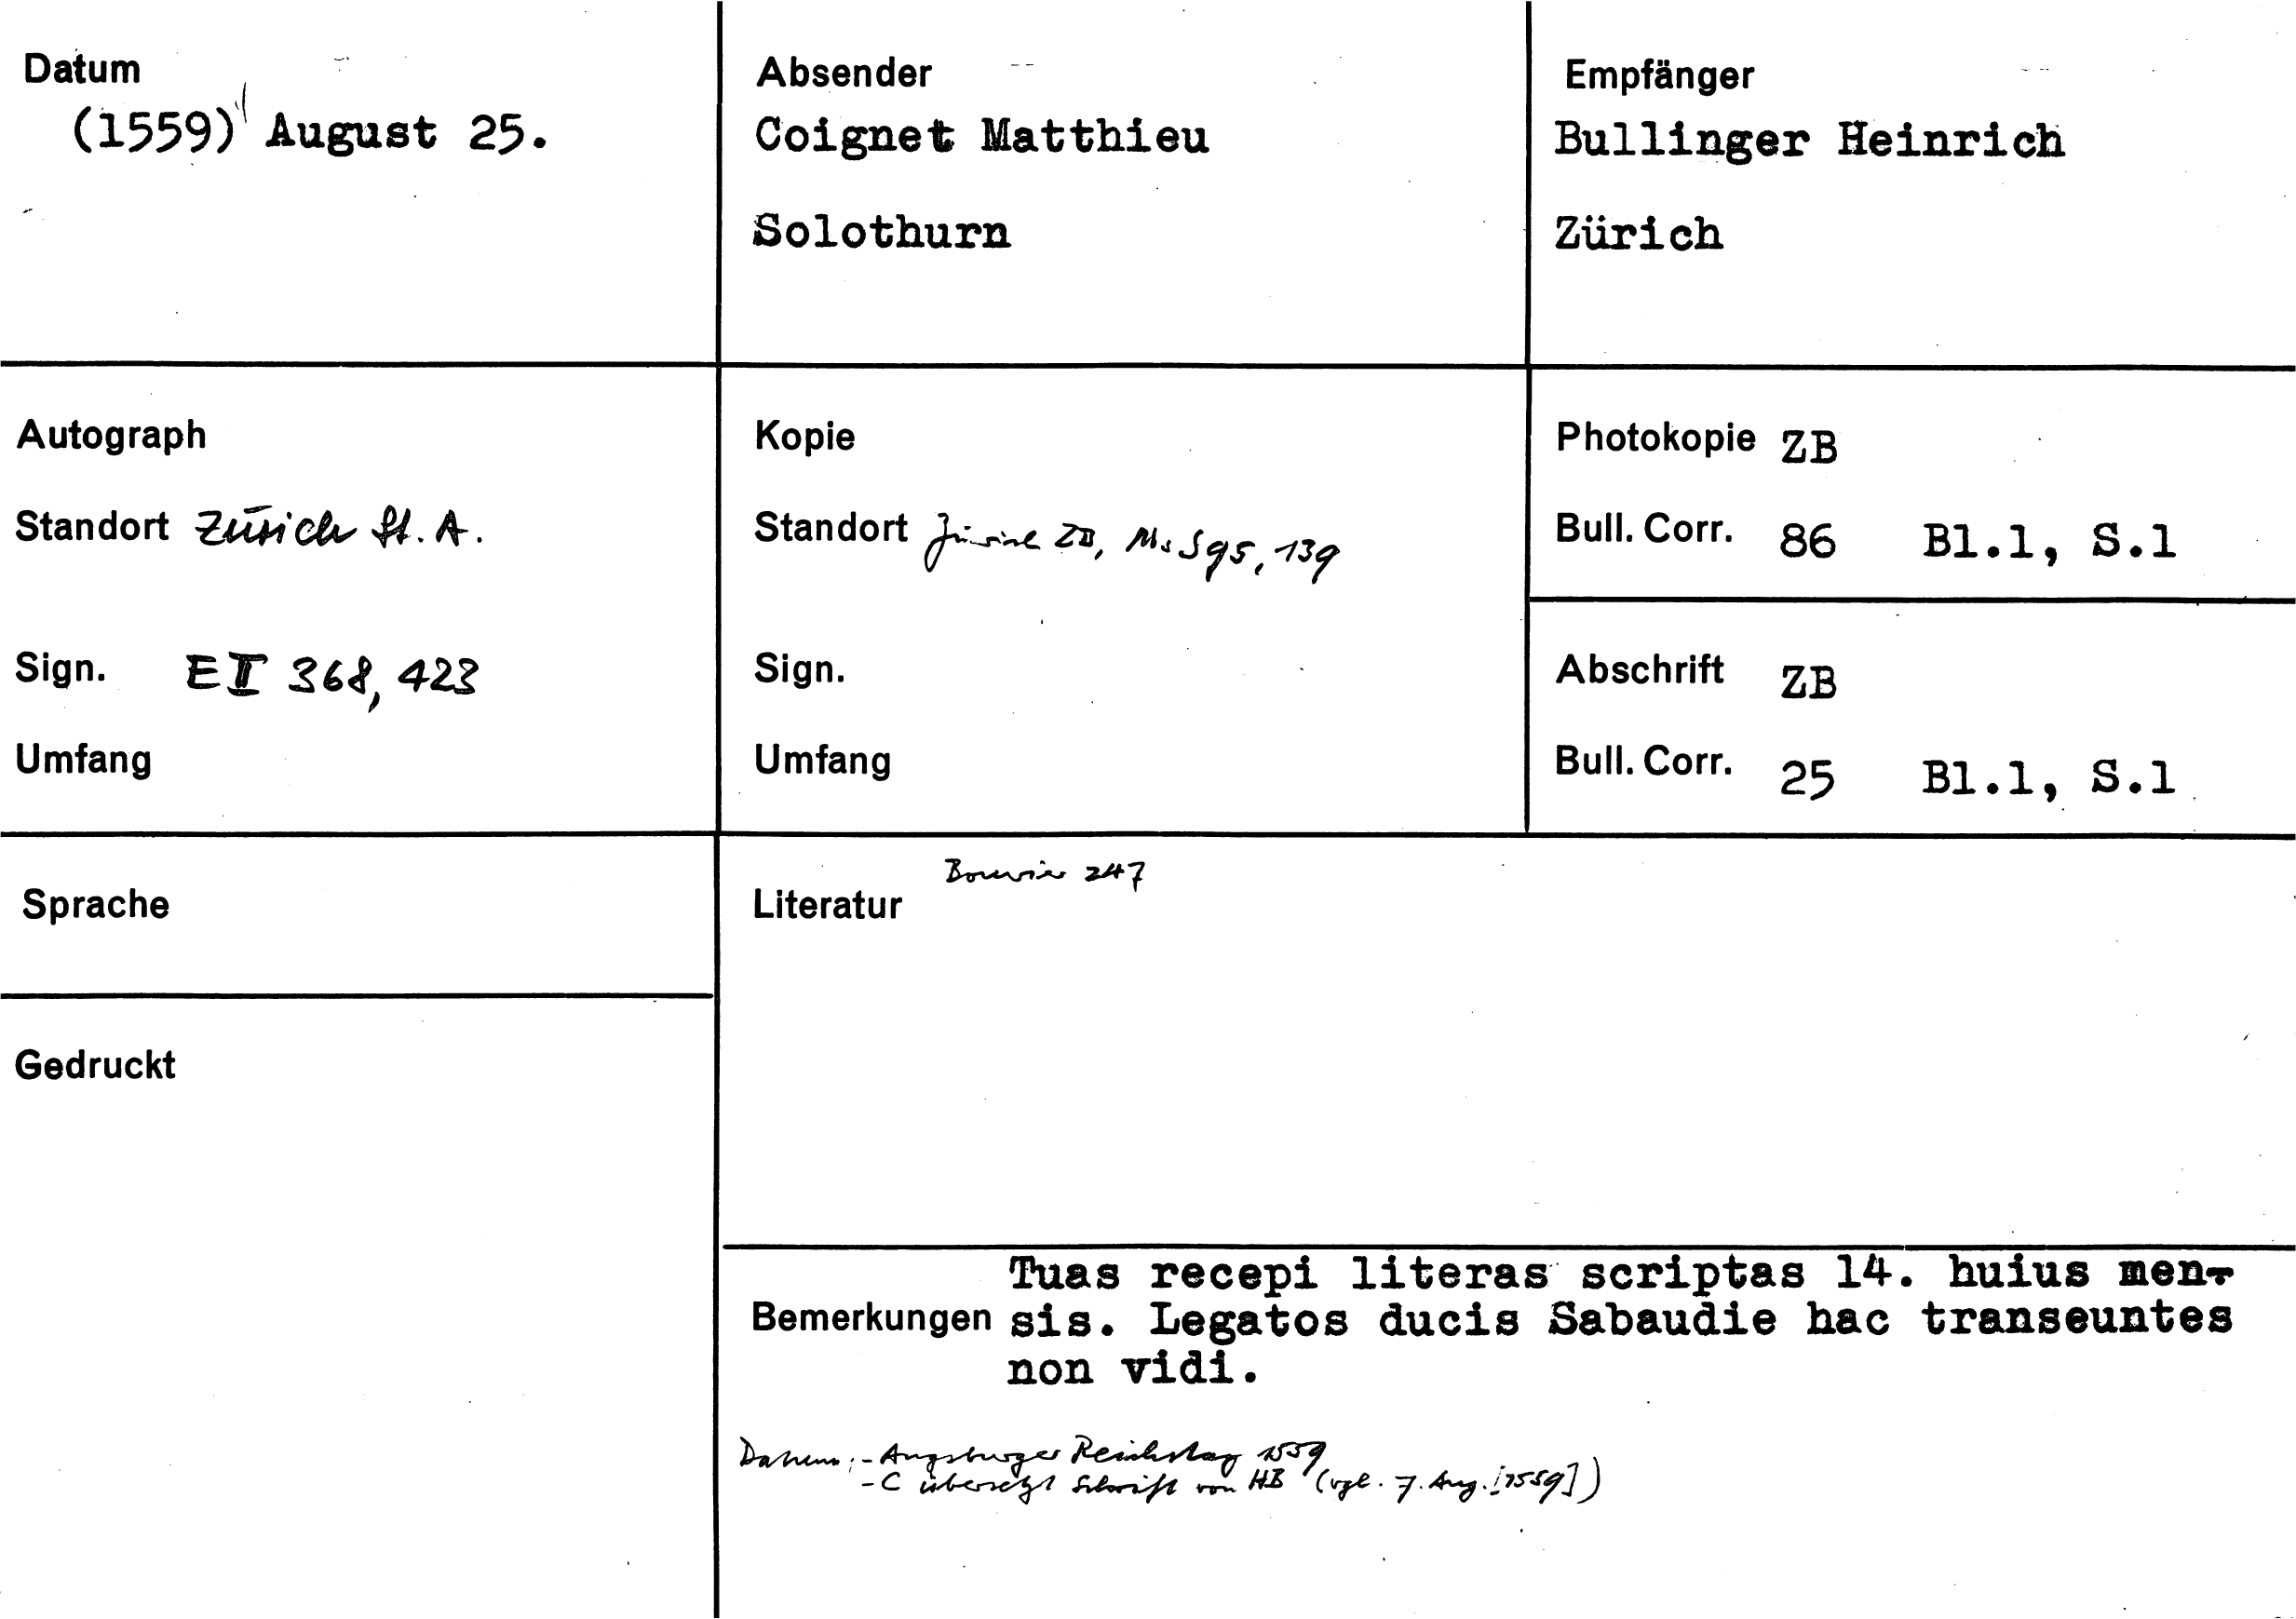 Datum
(1559) August 25.
Absender
Coignet Matthieu
Solothurn
Empfänger
Bullinger Heinrich
Zürich
Autograph
Standort Zürich St. A.
Sign. E II 368, 423
Umfang
Kopie
Standort Zürich ZB, Ms S 95, 139
Sign.
Umfang
Photokopie ZB
Bull. Corr. 86 Bl.1, S.1
Abschrift ZB
Bull. Corr. 25 Bl.1, S.1
Sprache
Gedruckt
Literatur Bouvier 247
Bemerkungen
Tuas recepi literas scriptas 14. huius men-
sis. Legatos ducis Sabaudie hac transeuntes
non vidi.
Datum: - Augsburger Reichstag 1559
- C übersetzt Schrift von HB (vgl. 7. Aug. [1559])